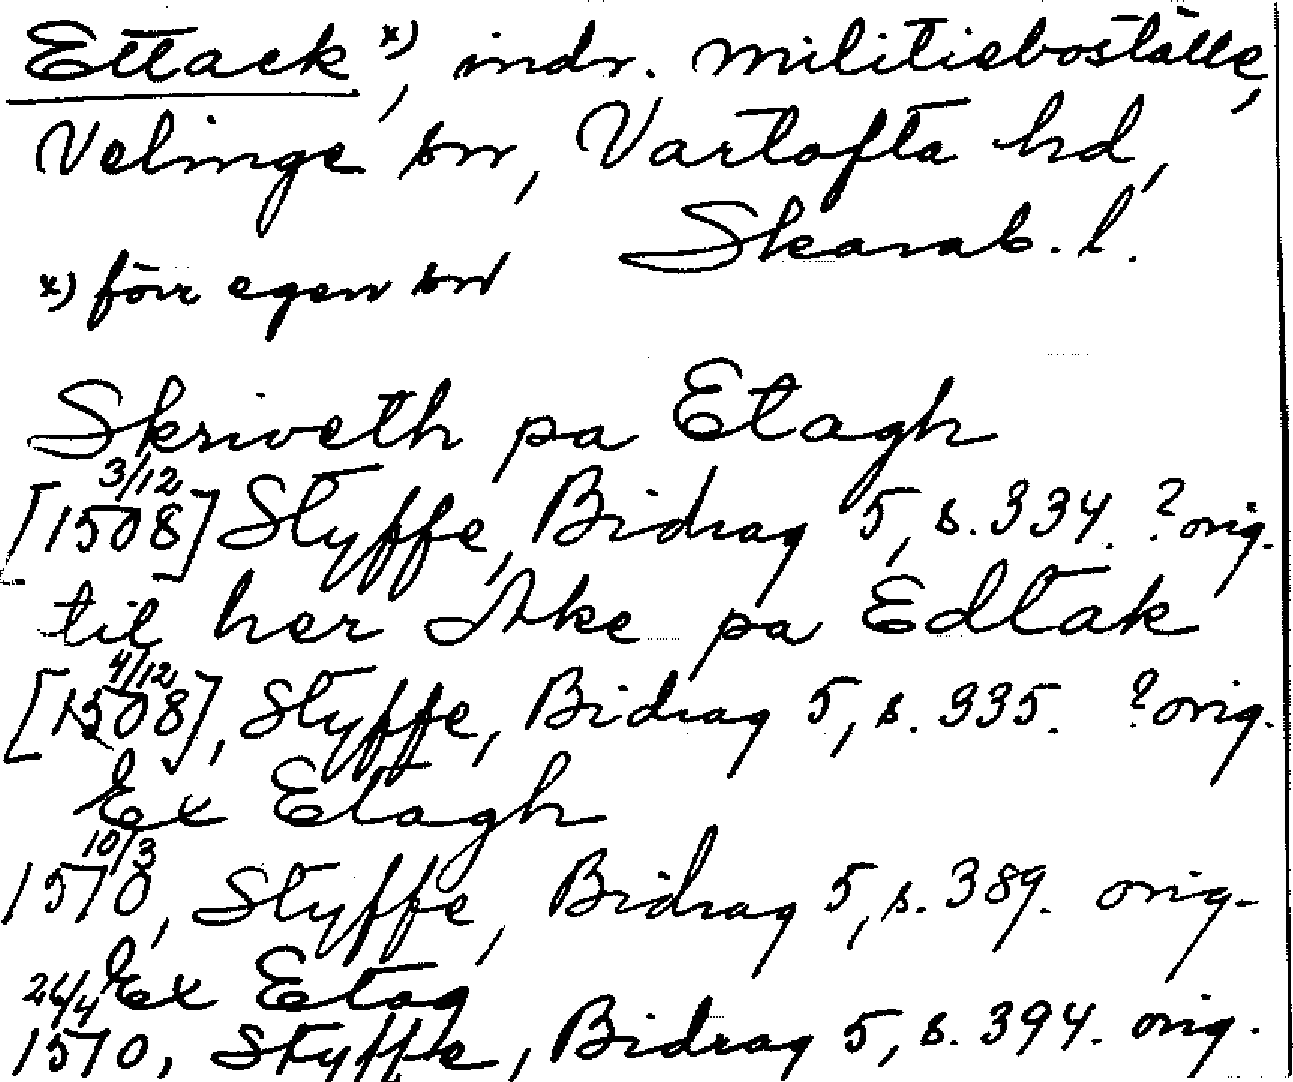 Ettack x), indr. militieboställe,
Velinge sn, Vartofta hd,
Skarab. l.
x) förr egen sn
Skriveth pa Etagh
[1508 3/12] Styffe, Bidrag 5, s. 334. ? orig.
til her Åke pa Edtak
[1508 4/12], Styffe, Bidrag 5, s. 335. ? orig.
Ex Etagh
1510 10/3, Styffe, Bidrag 5, s. 389. orig.
Ex Etag
1510 26/4, Styffe, Bidrag 5, s. 394. orig.